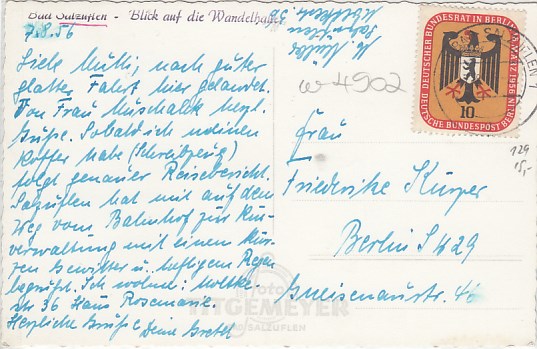 Bad Salzuflen - Blick auf die Wandelhalle
7.8.56
Liebe Mutti, nach guter
glatter Fahrt hier gelandet.
Von Frau Muschalek herzl.
Grüße. Sobald ich meinen
Koffer habe (Schreibzeug)
folgt genauer Reisebericht.
Salzuflen hat mit auf dem
Weg vom Bahnhof zur Kur-
verwaltung mit einem kur-
zen Gewitter u. heftigem Regen
begrüßt. Ich wohne: Moltke-
str 36 Haus Rosemarie.
Herzliche Grüße Deine Gretel
Salzuflen
w 4902
DEUTSCHER BUNDESRAT IN BERLIN 16. MÄRZ 1956
10
DEUTSCHE BUNDESPOST BERLIN
SALZUFLEN 1
129
15,-
Frau
Friederike Kurper
Berlin SW 29
Gneisenaustr. 46
foto
TITGEMEYER
BAD SALZUFLEN